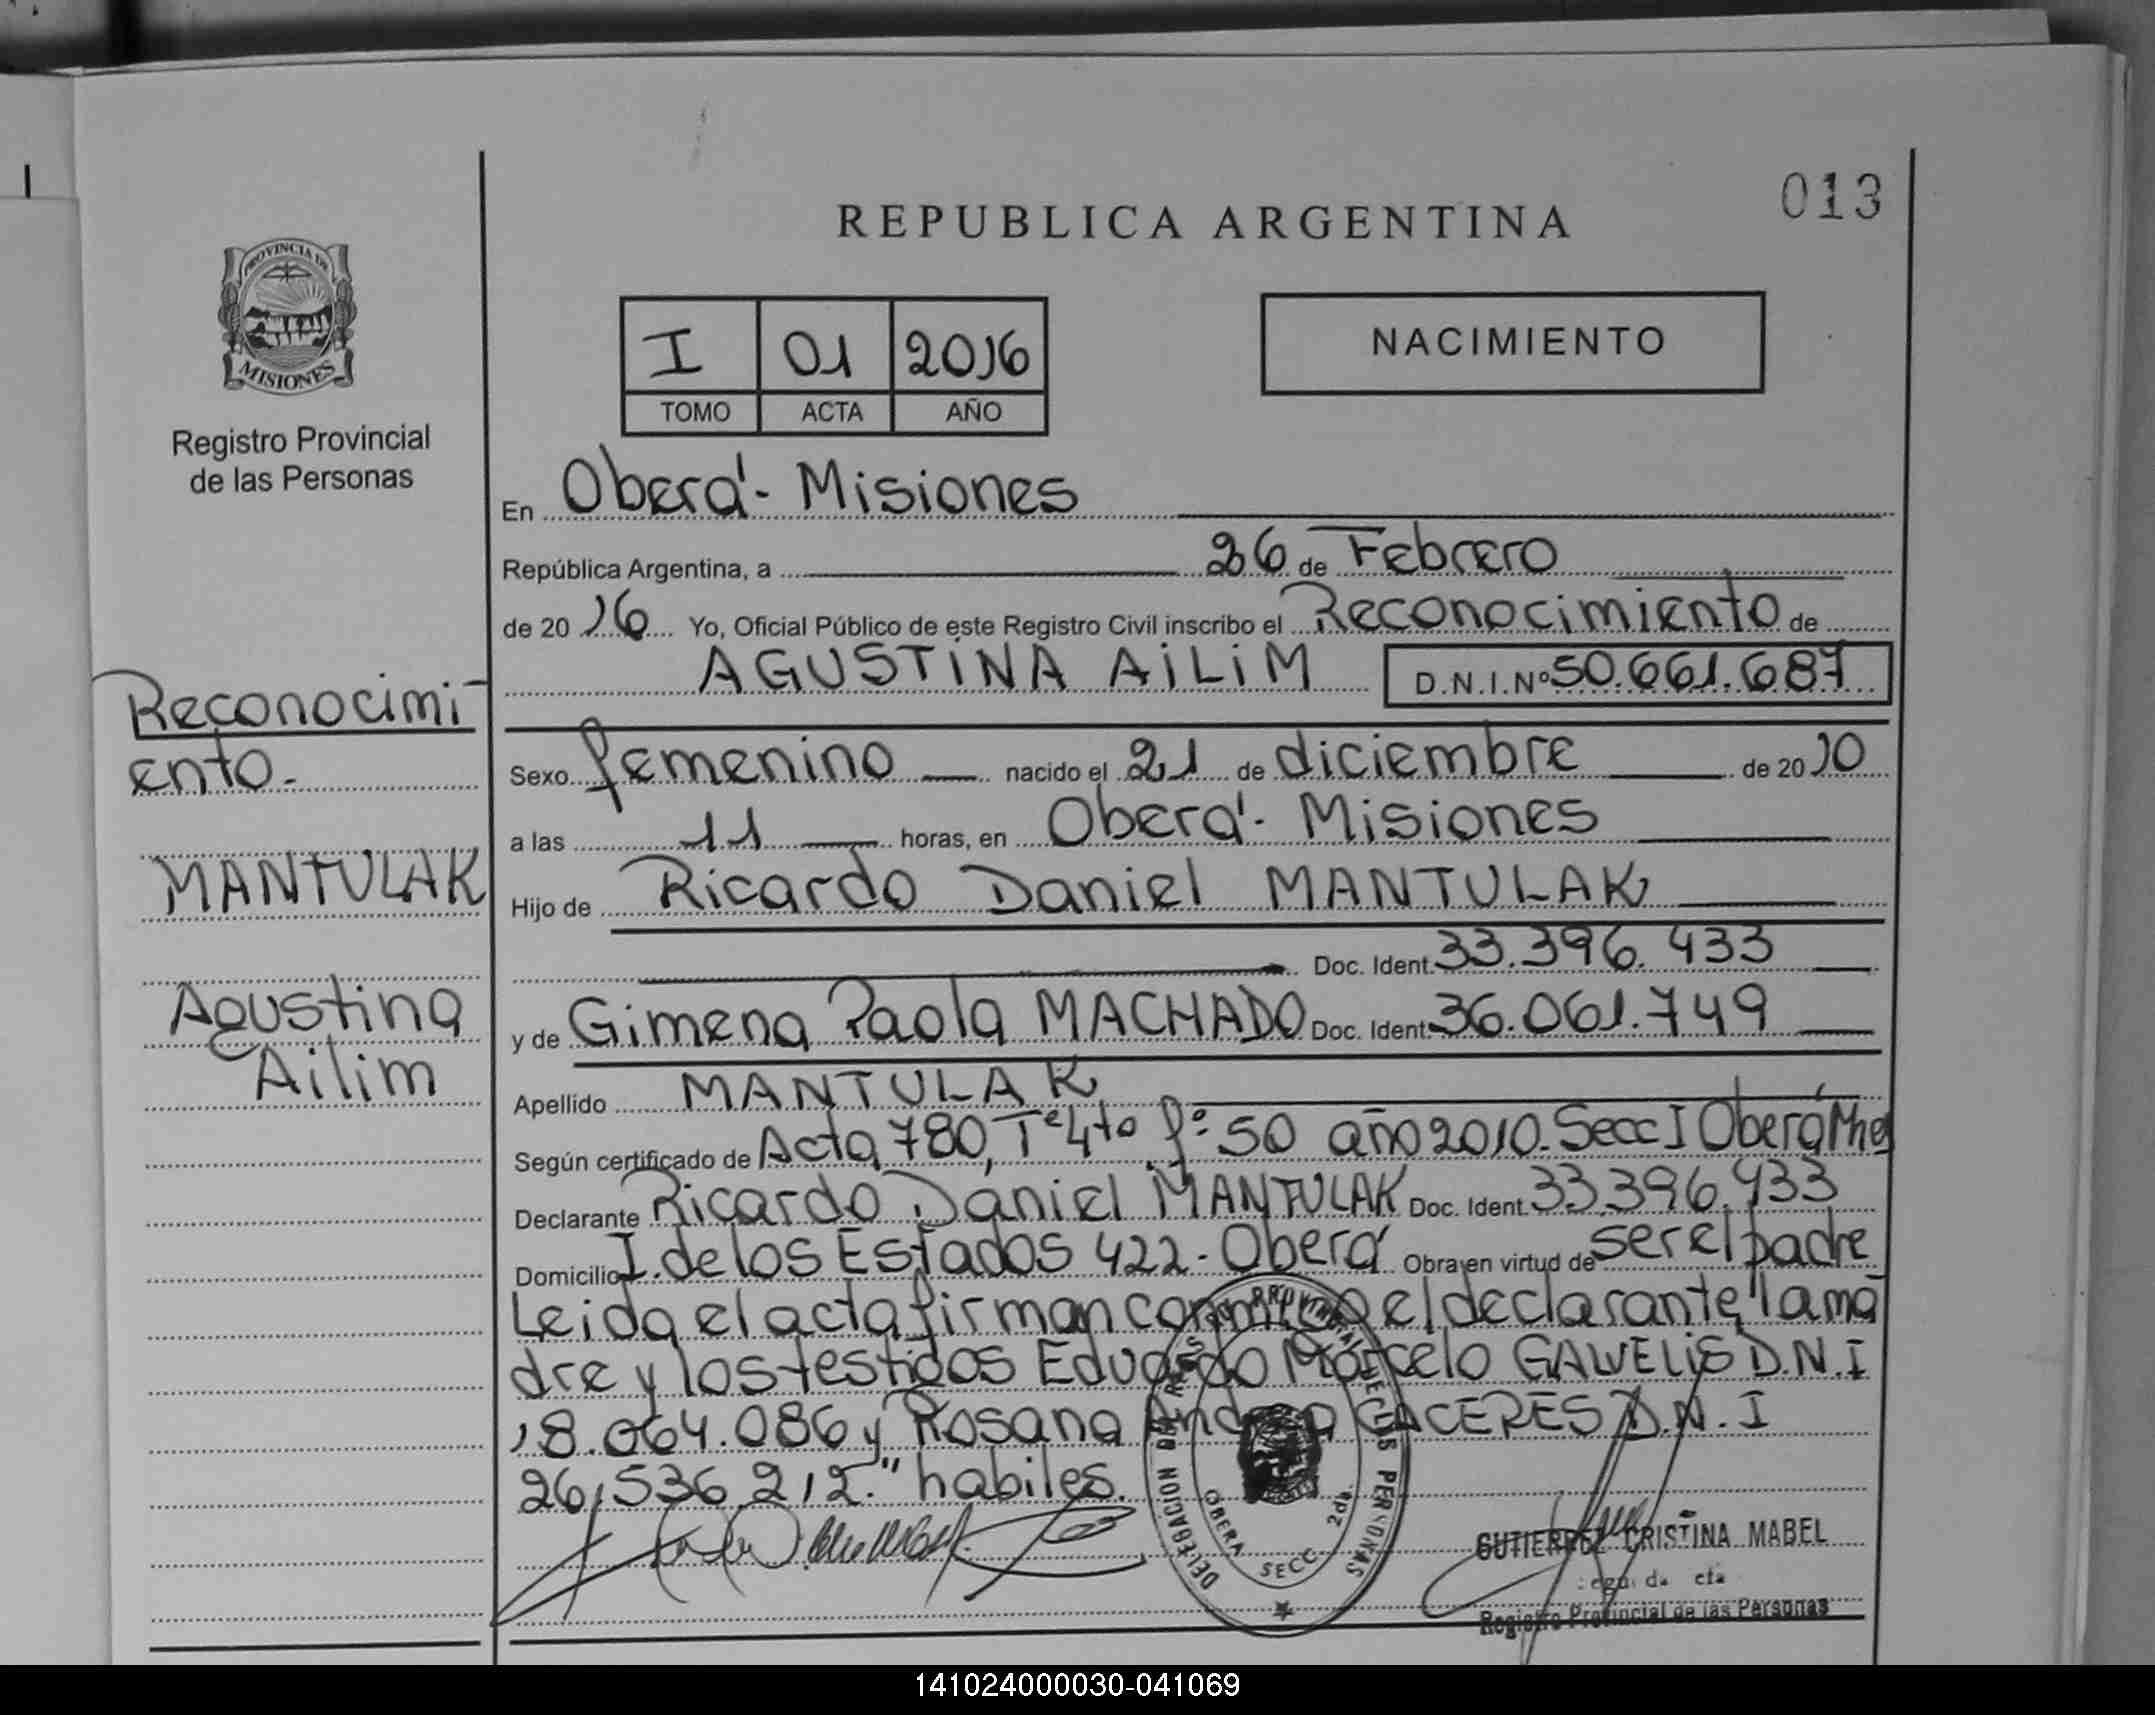 013
REPUBLICA ARGENTINA
PROVINCIA DE
MISIONES
Registro Provincial
de las Personas
I 01 2016
TOMO ACTA AÑO
NACIMIENTO
En Oberá - Misiones
República Argentina, a 26 de Febrero
de 20 16 Yo, Oficial Público de este Registro Civil inscribo el Reconocimiento de
AGUSTINA AILIM D.N.I.Nº 50.661.687
Reconocimi
ento.
MANTULAK
Agustina
Ailim
Sexo femenino nacido el 21 de diciembre de 20 10
a las 11 horas, en Oberá - Misiones
Hijo de Ricardo Daniel MANTULAK
Doc. Ident. 33.396.433
y de Gimena Paola MACHADO Doc. Ident. 36.061.749
Apellido MANTULAK
Según certificado de Acta 780, Tº 4to fº 50 año 2010. Secc I Oberá Mnes
Declarante Ricardo Daniel MANTULAK Doc. Ident. 33.396.433
Domicilio I. de los Estados 422 - Oberá Obra en virtud de ser el padre
Leida el acta firman conmigo el declarante, la ma
dre y los testigos Eduardo Marcelo GAWELIS D.N.I
18.064.086 y Rosana Andrea CACERES D.N.I
26.536.212." habiles.
DELEGACION DEL REGISTRO PROVINCIAL DE LAS PERSONAS
OBERA SECC. 2da.
GUTIERREZ CRISTINA MABEL
Registro Provincial de las Personas
141024000030-041069